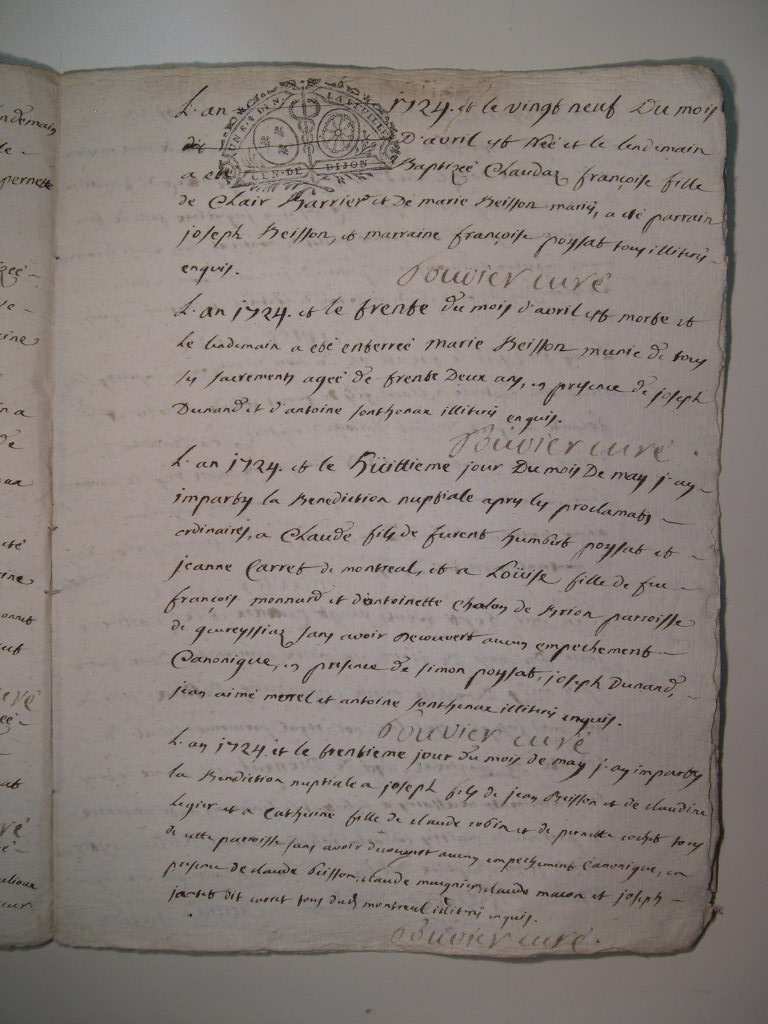 L'an 1724. et le vingt neuf Du mois
dit D'avril est Neé et le lendemain
a eté Baptizeé Claudaz françoise fille
de Clair Barrier et De marie Reisson mariés, a eté parrain
joseph Reisson, et marraine françoise poyssat tous illitirés
enquis.
Bouvier curé
L'an 1724. et le trente du mois d'avril est morte et
le lendemain a eté enterreé marie Reisson munie de tous
les sacrements ageé de trente Deux ans, en presence de joseph
Dunand et d'antoine sonthonax illitirés enquis.
Bouvier curé
L'an 1724. et le hüittieme jour Du mois De may j'ay
imparty la Benediction nuptiale aprés les proclamats
ordinaires, a Claude fils de furent humbert poyssat et
jeanne Carret de montreal, et a Loüise fille de feu
françois monnard et d'antoinette Chalon de Brion parroisse
de geureyssiaz sans avoir decouvert aucun empechement
Canonique, en presence de simon poyssat, joseph Dunand,
jean aimé merrel et antoine sonthonax illitirés enquis.
Bouvier curé
L'an 1724. et le trentieme jour du mois de may j'ay imparty
la Benediction nuptiale a joseph fils de jean Reisson et de claudine
legier et a Catherine fille de claude robin et de pernette cochet tous
de cette parroisse sans avoir decouvert aucun empechement Canonique, en
presence de claude Buisson, claude maignier, claude macon et joseph
dit tous dudt montreal illitirés enquis.
Bouvier curé.
UN.S.8.DEN
LA FEUILLE
GEN.DE DIJON